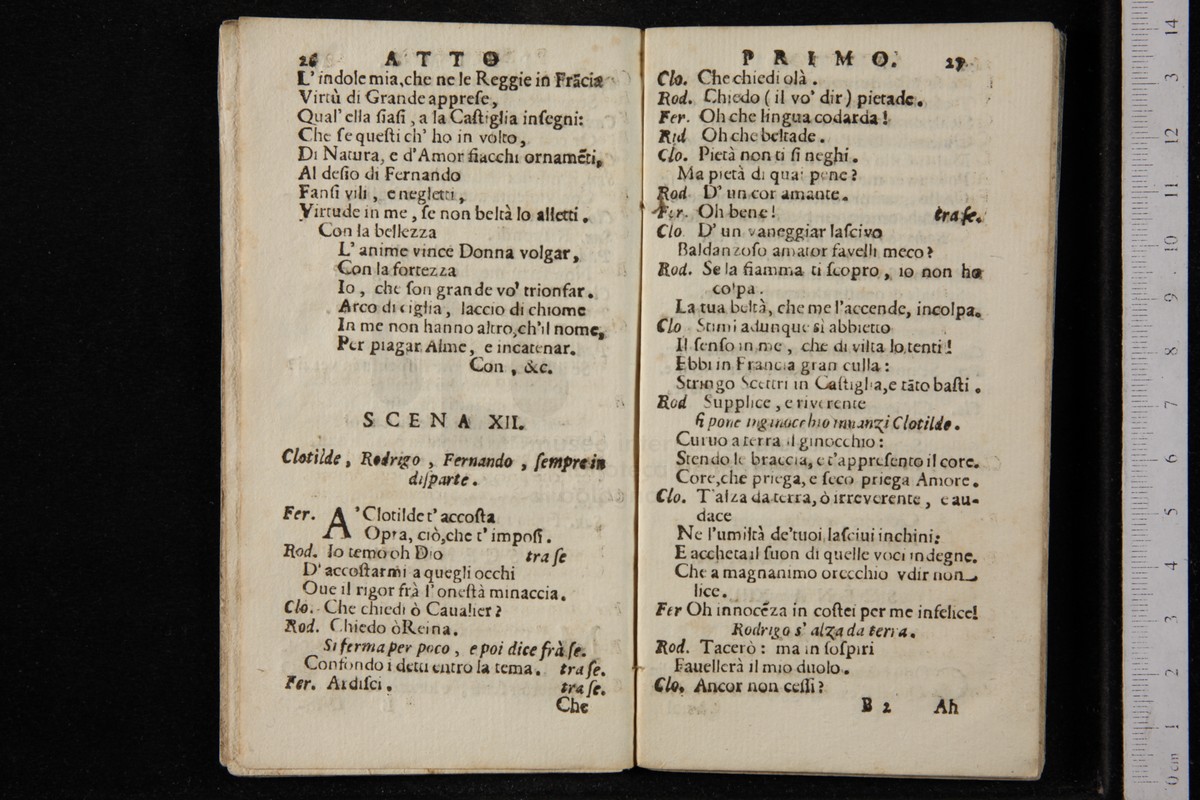 26 ATTO
L'indole mia, che ne le Reggie in Frācia
Virtù di Grande apprese,
Qual' ella siasi, a la Castiglia insegni:
Che se questi ch' ho in volto,
Di Natura, e d'Amor fiacchi ornamēti,
Al desio di Fernando
Fansi vili, e negletti,
Virtude in me, se non beltà lo alletti.
Con la bellezza
L' anime vince Donna volgar,
Con la fortezza
Io, che son grande vo' trionfar.
Arco di ciglia, laccio di chiome
In me non hanno altro, ch'il nome,
Per piagar Alme, e incatenar.
Con, &c.
SCENA XII.
Clotilde, Rodrigo, Fernando, sempre in
disparte.
Fer. A'Clotilde t' accosta
Opra, ciò, che t' imposi.
Rod. Io temo oh Dio tra se
D' accostarmi a quegli occhi
Oue il rigor frà l'onestà minaccia.
Clo. Che chiedi ò Caualier?
Rod. Chiedo ò Reina.
Si ferma per poco, e poi dice frà se.
Confondo i detti entro la tema. tra se.
Fer. Ardisci. tra se.
Che
PRIMO. 27
Clo. Che chiedi olà.
Rod. Chiedo (il vo' dir) pietade.
Fer. Oh che lingua codarda!
Rid Oh che beltade.
Clo. Pietà non ti si neghi.
Ma pietà di quai pene?
Rod D' un cor amante.
Fer. Oh bene! tra se.
Clo D' un vaneggiar lascivo
Baldanzoso amator favelli meco?
Rod. Se la fiamma ti scopro, io non ho
colpa.
La tua beltà, che me l'accende, incolpa.
Clo Stimi adunque sì abbietto
Il senso in me, che di viltà lo tenti!
Ebbi in Francia gran culla:
Stringo Scettri in Castiglia, e tāto basti.
Rod Supplice, e riverente
si pone inginocchio innanzi Clotilde.
Curuo a terra il ginocchio:
Stendo le braccia, e t'appresento il core.
Core, che priega, e seco priega Amore.
Clo. T'alza da terra, ò irreverente, e au-
dace
Ne l'umiltà de'tuoi lasciui inchini:
E accheta il suon di quelle voci indegne.
Che a magnanimo orecchio vdir non
lice.
Fer Oh innocēza in costei per me infelice!
Rodrigo s' alza da terra.
Rod. Tacerò: ma in sospiri
Fauellerà il mio duolo.
Clo. Ancor non cessi?
B 2 Ah
14
13
12
11
10
9
8
7
6
5
4
3
2
1
0 cm